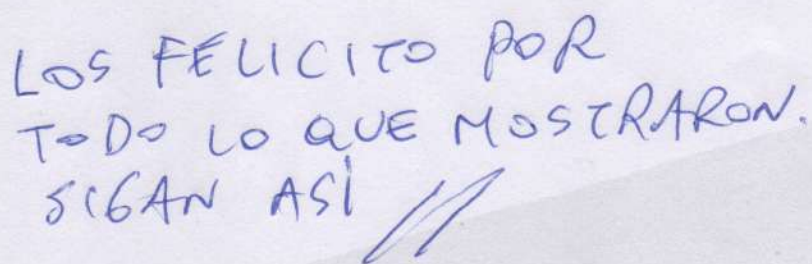 LOS FELICITO POR
TODO LO QUE MOSTRARON.
SIGAN ASÍ